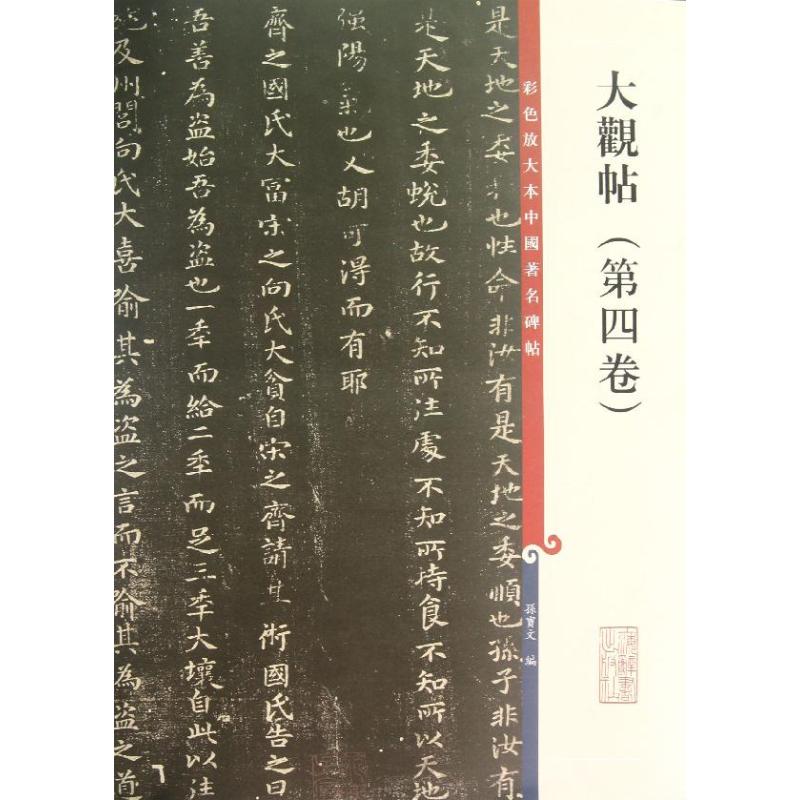 大觀帖(第四卷)
彩色放大本中國著名碑帖
孫寶文 編
上海辭書出版社
是天地之委和也性命非汝有是天地之委順也孫子非汝有
是天地之委蛻也故行不知所注處不知所持食不知所以天地
強陽氣也又胡可得而有耶
齊之國氏大冨宋之向氏大貧自宋之齊請其術國氏告之曰
吾善為盜始吾為盜也一季而給二季而足三季大壤自此以注
施及州閭向氏大喜喻其為盜之言而不喻其為盜之道